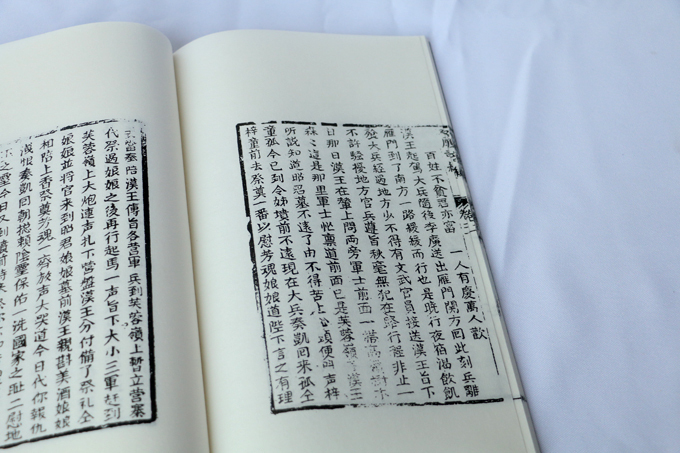 百姓不貧君亦富　一人有慶萬人歡
漢王起駕大兵隨後李廣送出雁門関方回此刻兵離
雁門到了南方一路緩緩而行也是曉行夜宿渴飲飢
大兵經過地方少不得有文武官員接送漢王旨下
不許騷擾地方官兵遵旨秋毫無犯在路行程非止一
日那日漢王在輦上問兩旁軍士前面一帶高
森這是那里軍士忙禀道前面已是芙蓉嶺
听說知道昭君墓不遠了由不得苦上頭便叫声梓
童孤今已到令姊墳前不遠現在大兵奏凱回來孤仝
梓童前去祭奠一番以慰芳魂娘娘道陛下言之有理
當奉陪漢王傳旨各营軍兵到芙蓉嶺上暫立营寨
代祭過娘娘之後再行起馬一声旨下大小三軍赶到
芙蓉嶺上大炮連声扎下营盤漢王分付俻了祭礼仝
娘娘並將官來到昭君娘娘墓前漢王親斟美酒娘娘
相陪上香祭奠芳魂一齊放声大哭道今日代你報仇
恨奏凱回朝拋賴陰靈保佑一統國家之